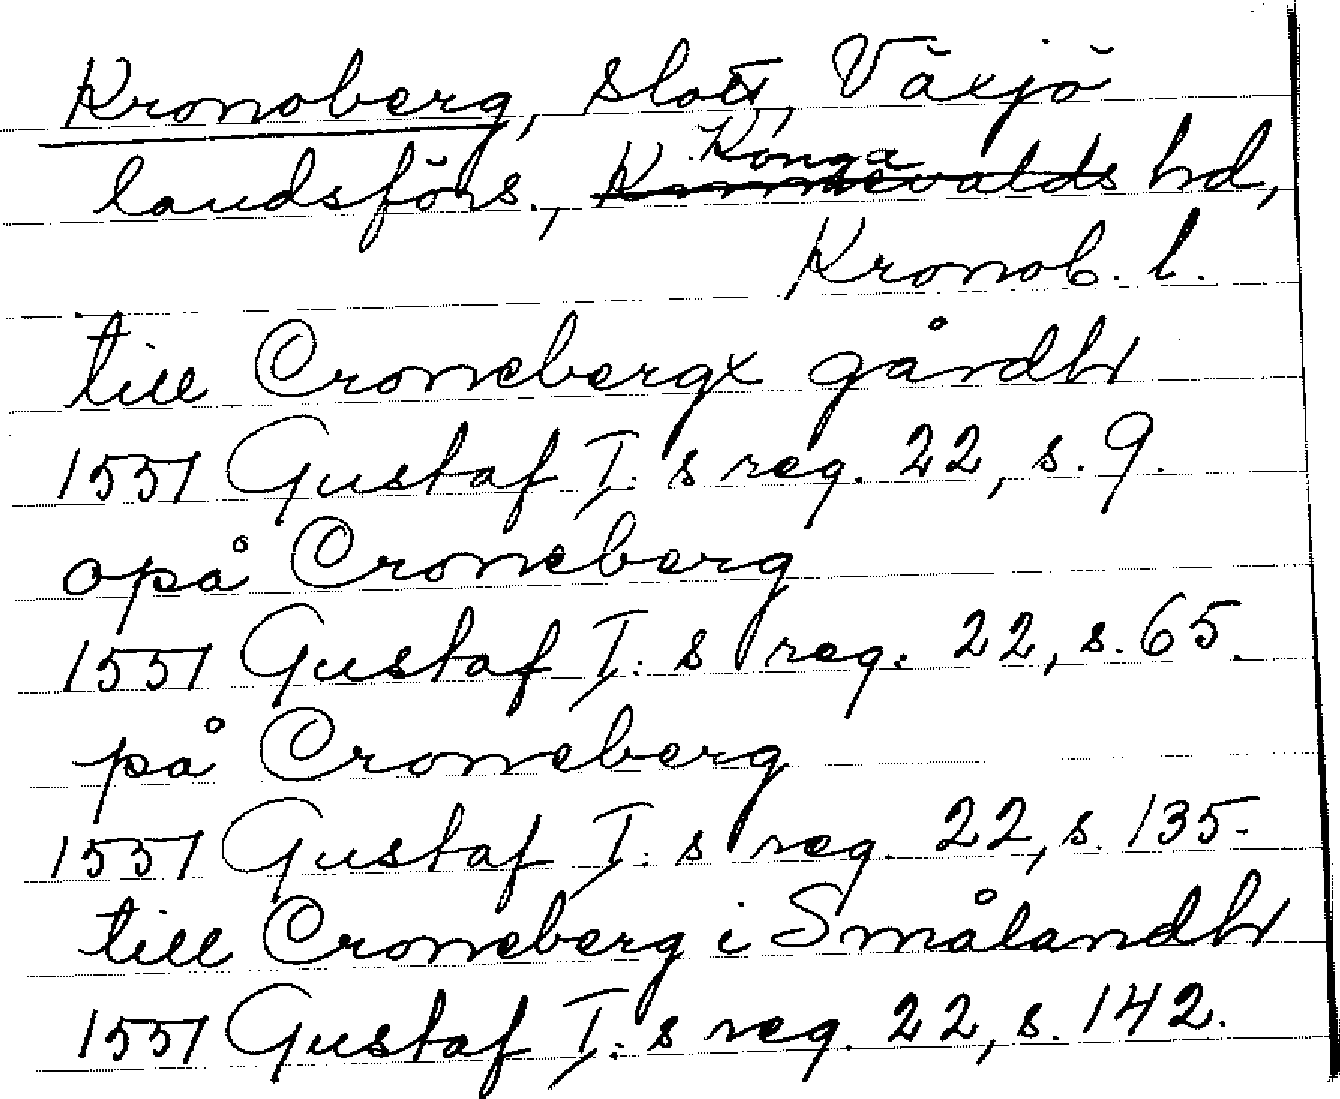 Kronoberg, slott, Växjö
landsförs., ~~Kinnevalds~~ Konga hd,
Kronob. l.
till Cronebergx gårdh
1551 Gustaf I:s reg. 22, s. 9.
opå Croneberg
1551 Gustaf I:s reg. 22, s. 65.
på Croneberg
1551 Gustaf I:s reg. 22, s. 135.
till Croneberg i Smålandh
1551 Gustaf I:s reg. 22, s. 142.